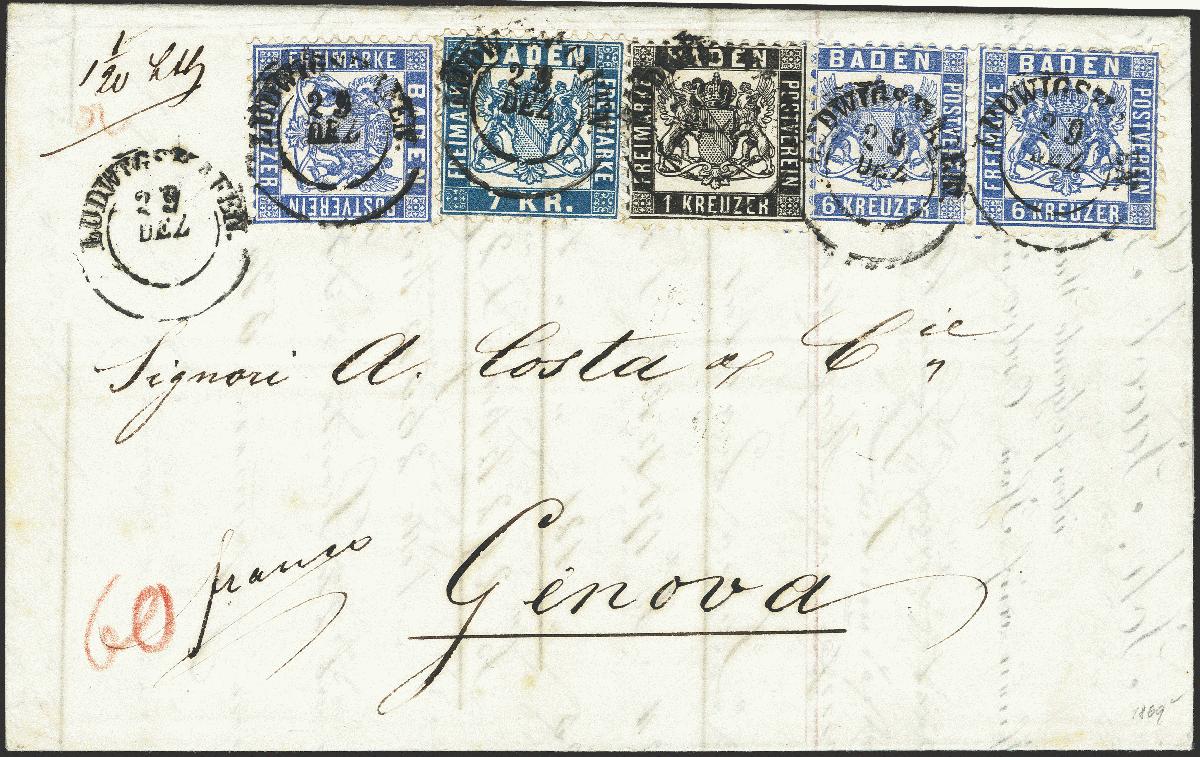 1/20
FREIMARKE
POSTVEREIN
KREUZER
LUDWIGSHAFEN.
29
DEZ
BADEN
FREIMARKE
FREIMARKE
7 KR.
29
DEZ
BADEN
FREIMARKE
POSTVEREIN
1 KREUZER
BADEN
POSTVEREIN
6 KREUZER
LUDWIGSHAFEN
29
DEZ
BADEN
FREIMARKE
POSTVEREIN
6 KREUZER
LUDWIGSHAFEN
29
DEZ
LUDWIGSHAFEN.
29
DEZ
Signori A. Costa & Cie
franco
Genova
60
1869